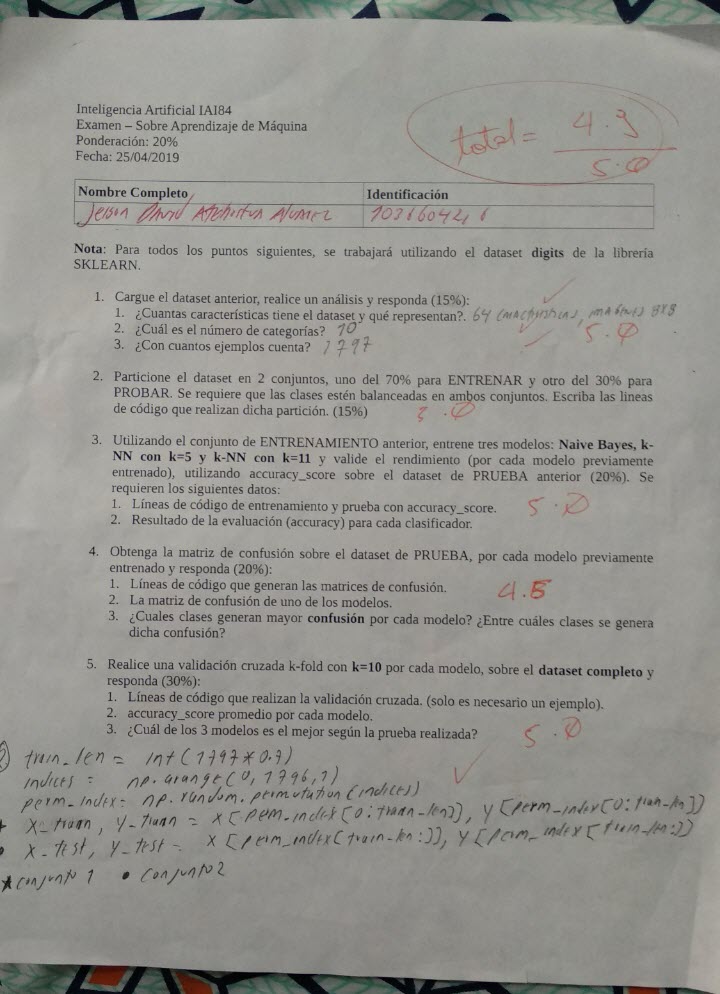 Inteligencia Artificial IAI84
Examen – Sobre Aprendizaje de Máquina
Ponderación: 20%
Fecha: 25/04/2019
total = 4.9
5.0
Nombre Completo Identificación
Jeison David
Nota: Para todos los puntos siguientes, se trabajará utilizando el dataset digits de la librería
SKLEARN.
1. Cargue el dataset anterior, realice un análisis y responda (15%):
1. ¿Cuantas características tiene el dataset y qué representan?. 64 características, imagenes 8x8
2. ¿Cuál es el número de categorías? 10
5.0
3. ¿Con cuantos ejemplos cuenta? 1797
2. Particione el dataset en 2 conjuntos, uno del 70% para ENTRENAR y otro del 30% para
PROBAR. Se requiere que las clases estén balanceadas en ambos conjuntos. Escriba las lineas
de código que realizan dicha partición. (15%) 3.0
3. Utilizando el conjunto de ENTRENAMIENTO anterior, entrene tres modelos: Naive Bayes, k-
NN con k=5 y k-NN con k=11 y valide el rendimiento (por cada modelo previamente
entrenado), utilizando accuracy_score sobre el dataset de PRUEBA anterior (20%). Se
requieren los siguientes datos:
1. Líneas de código de entrenamiento y prueba con accuracy_score. 5.0
2. Resultado de la evaluación (accuracy) para cada clasificador.
4. Obtenga la matriz de confusión sobre el dataset de PRUEBA, por cada modelo previamente
entrenado y responda (20%):
1. Líneas de código que generan las matrices de confusión. 4.5
2. La matriz de confusión de uno de los modelos.
3. ¿Cuales clases generan mayor confusión por cada modelo? ¿Entre cuáles clases se genera
dicha confusión?
5. Realice una validación cruzada k-fold con k=10 por cada modelo, sobre el dataset completo y
responda (30%):
1. Líneas de código que realizan la validación cruzada. (solo es necesario un ejemplo).
2. accuracy_score promedio por cada modelo.
3. ¿Cuál de los 3 modelos es el mejor según la prueba realizada? 5.0
2) train_len = int(1797*0.7)
indices = np.arange(0, 1796, 1)
perm_index = np.random.permutation(indices)
* X_train, Y_train = X[perm_index[0:train_len]], y[perm_index[0:train_len]]
• X_test, Y_test = X[perm_index[train_len:]], y[perm_index[train_len:]]
* conjunto 1 • conjunto 2